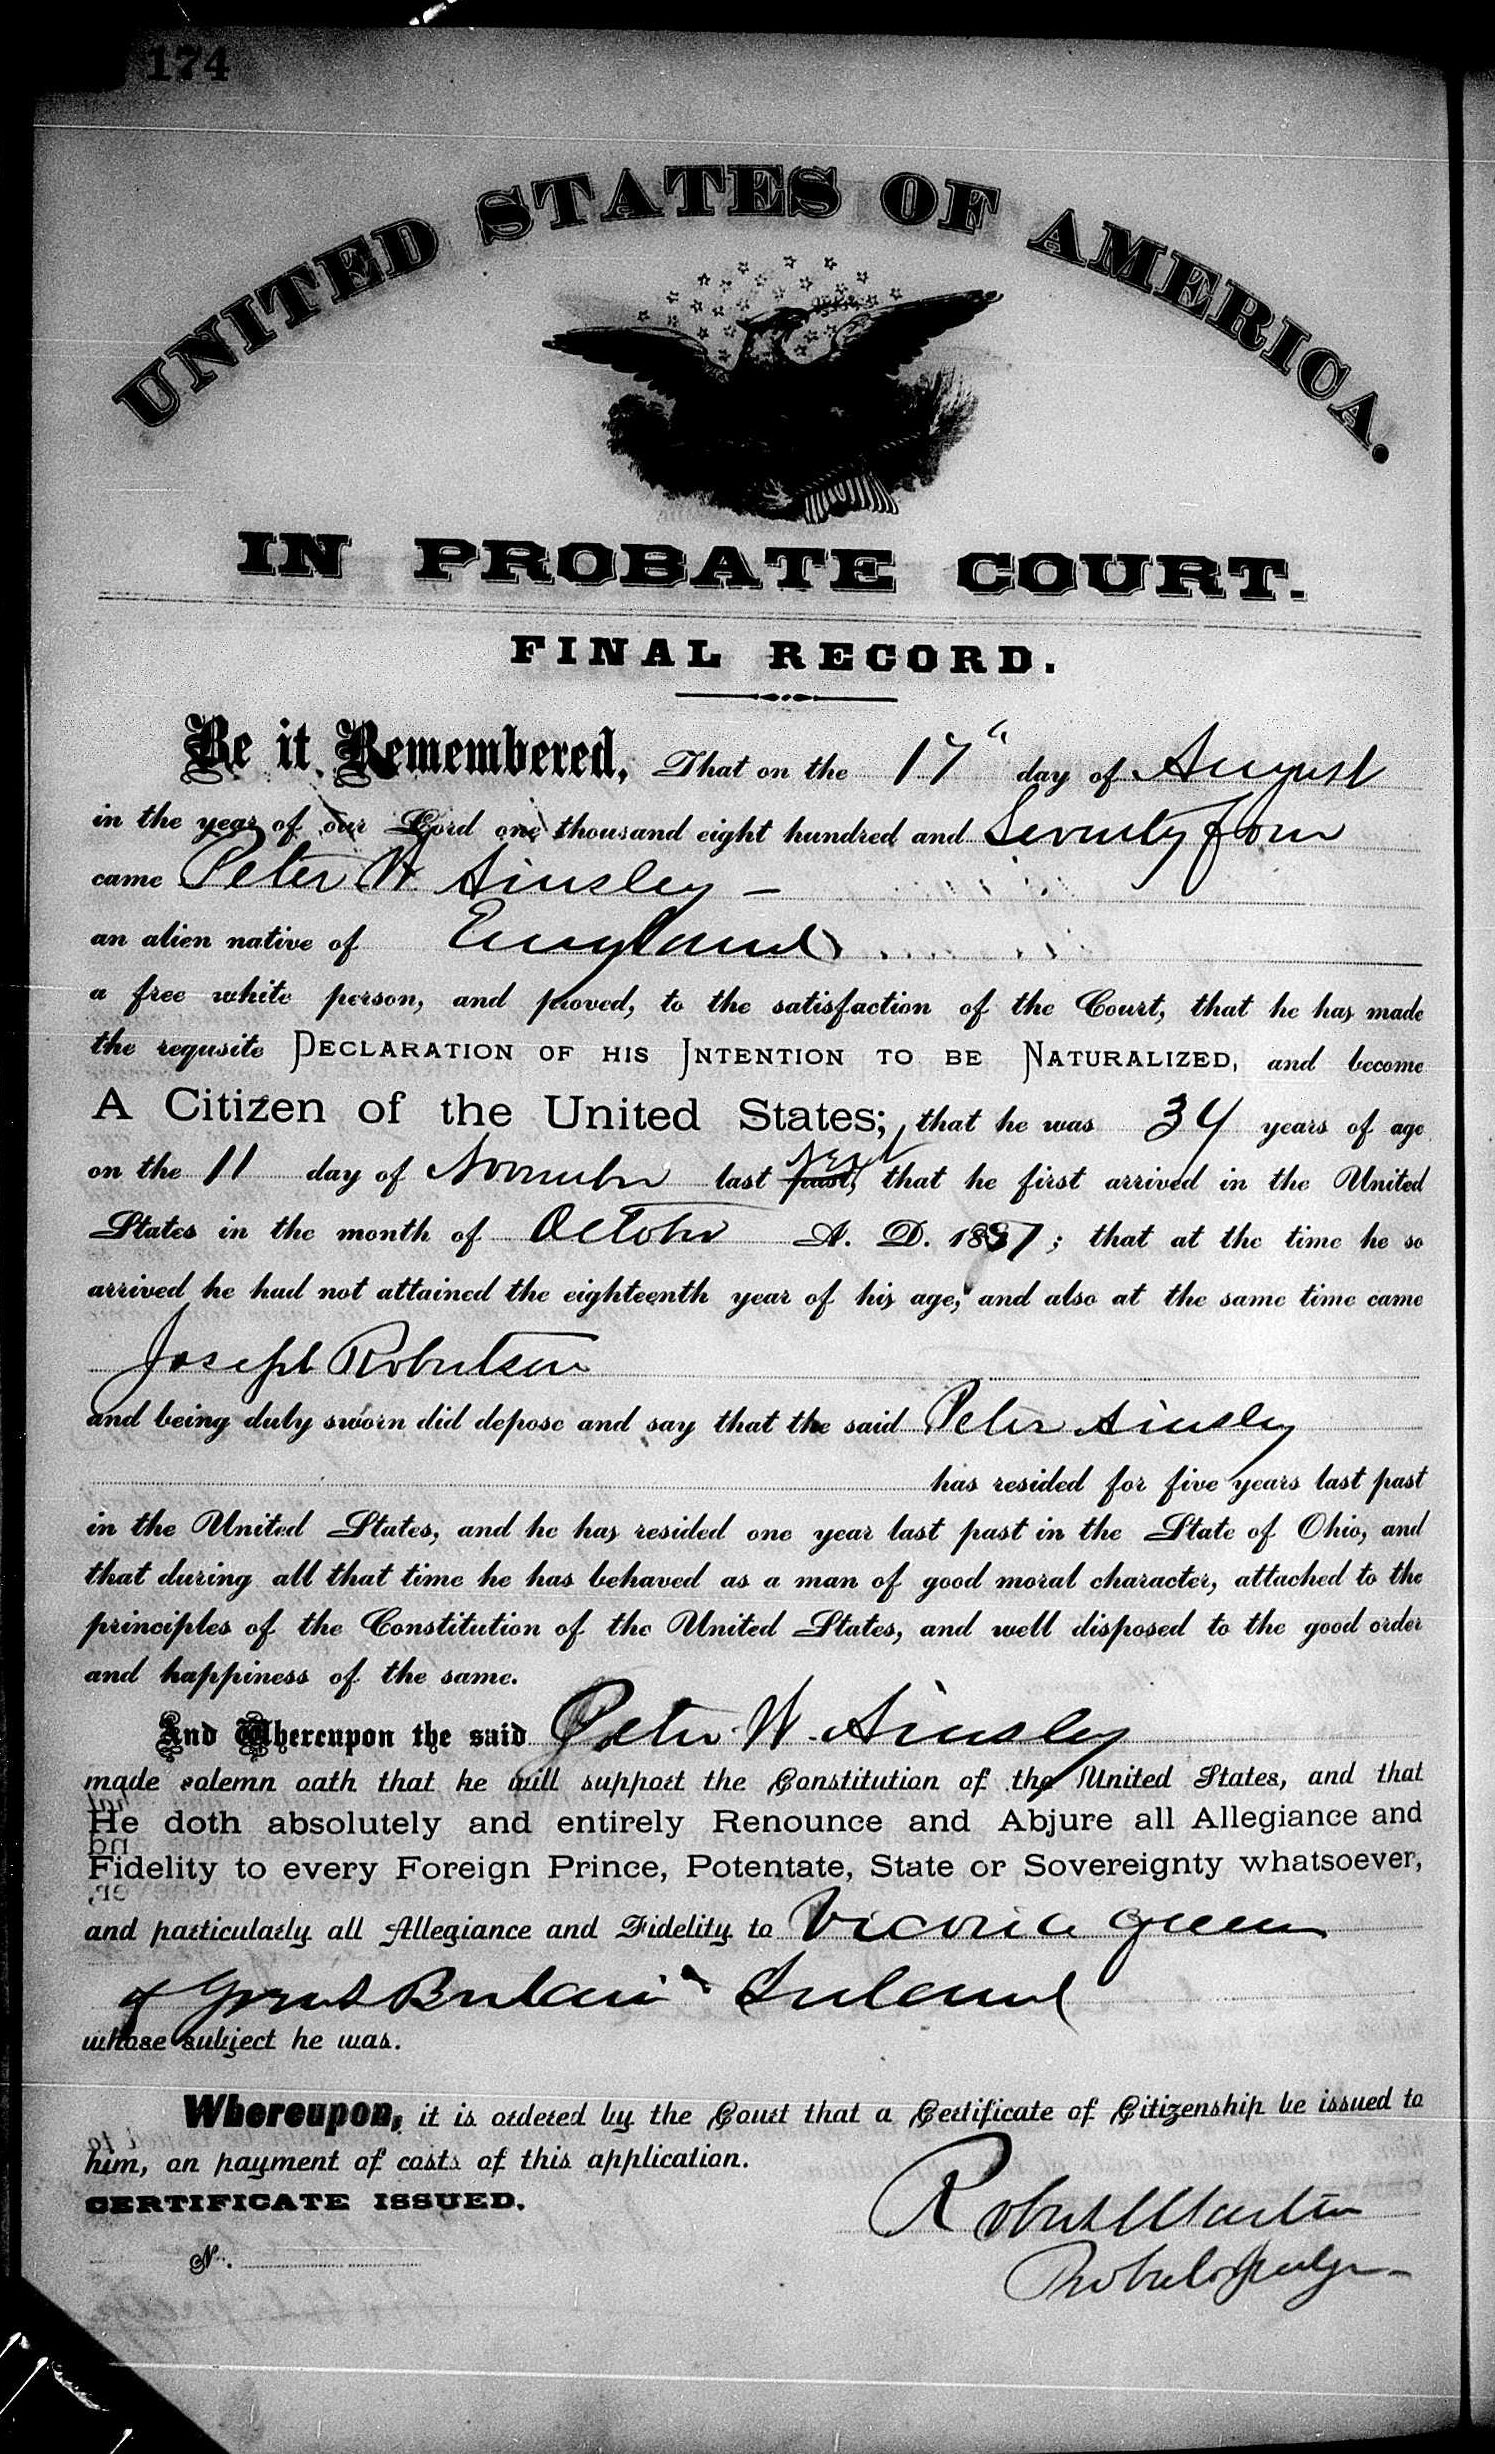 174
UNITED STATES OF AMERICA.
IN PROBATE COURT.
FINAL RECORD.
Be it Remembered, That on the 17" day of August
in the year of our Lord one thousand eight hundred and Seventy four
came Peter W. Ainsley —
an alien native of England
a free white person, and proved, to the satisfaction of the Court, that he has made
the requsite DECLARATION OF HIS INTENTION TO BE NATURALIZED, and become
A Citizen of the United States; that he was 34 years of age
on the 11 day of November last past, next that he first arrived in the United
States in the month of October A. D. 1857; that at the time he so
arrived he had not attained the eighteenth year of his age, and also at the same time came
Joseph Robertson
and being duly sworn did depose and say that the said Peter Ainsley
has resided for five years last past
in the United States, and he has resided one year last past in the State of Ohio, and
that during all that time he has behaved as a man of good moral character, attached to the
principles of the Constitution of the United States, and well disposed to the good order
and happiness of the same.
And Whereupon the said Peter W. Ainsley
made solemn oath that he will support the Constitution of the United States, and that
He doth absolutely and entirely Renounce and Abjure all Allegiance and
Fidelity to every Foreign Prince, Potentate, State or Sovereignty whatsoever,
and particularly all Allegiance and Fidelity to Vicoria Queen
of Great Britain & Ireland
whose subject he was.
Whereupon, it is ordered by the Court that a Certificate of Citizenship be issued to
him, on payment of costs of this application.
CERTIFICATE ISSUED.
Robert Martin
No.
Probate Judge